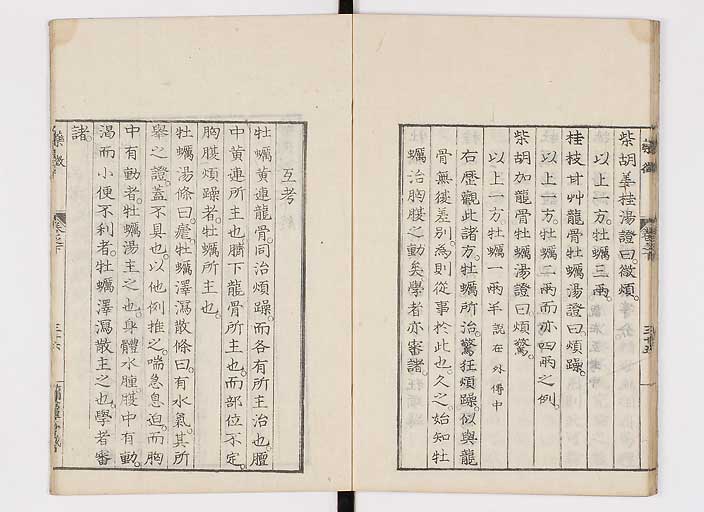 柴胡姜桂湯證曰微煩。
以上一方。牡蠣三兩。
桂枝甘艸龍骨牡蠣湯證曰煩躁。
以上一方。牡蠣二兩而亦四兩之例。
柴胡加龍骨牡蠣湯證曰煩驚。
以上一方。牡蠣一兩半說在外傳中
右歷觀此諸方。牡蠣所治驚狂煩躁。似與龍
骨無後差別。為則從事於此也。久之。始知牡
蠣治胸腹之動矣學者亦審諸。
互考
牡蠣黃連龍骨。同治煩躁。而各有所主治也。膻
中黃連所主也。臍下龍骨所主也。而部位不定。
胸腹煩躁者。牡蠣所主也。
牡蠣湯條曰瘧。牡蠣澤瀉散條曰。有水氣。其所
舉之證。蓋不具也。以他例推之。喘急息迫。而胸
中有動者。牡蠣湯主之也。身體水腫。腹中有動。
渴而小便不利者。牡蠣澤瀉散主之也。學者審
諸。
藥徵
三十六